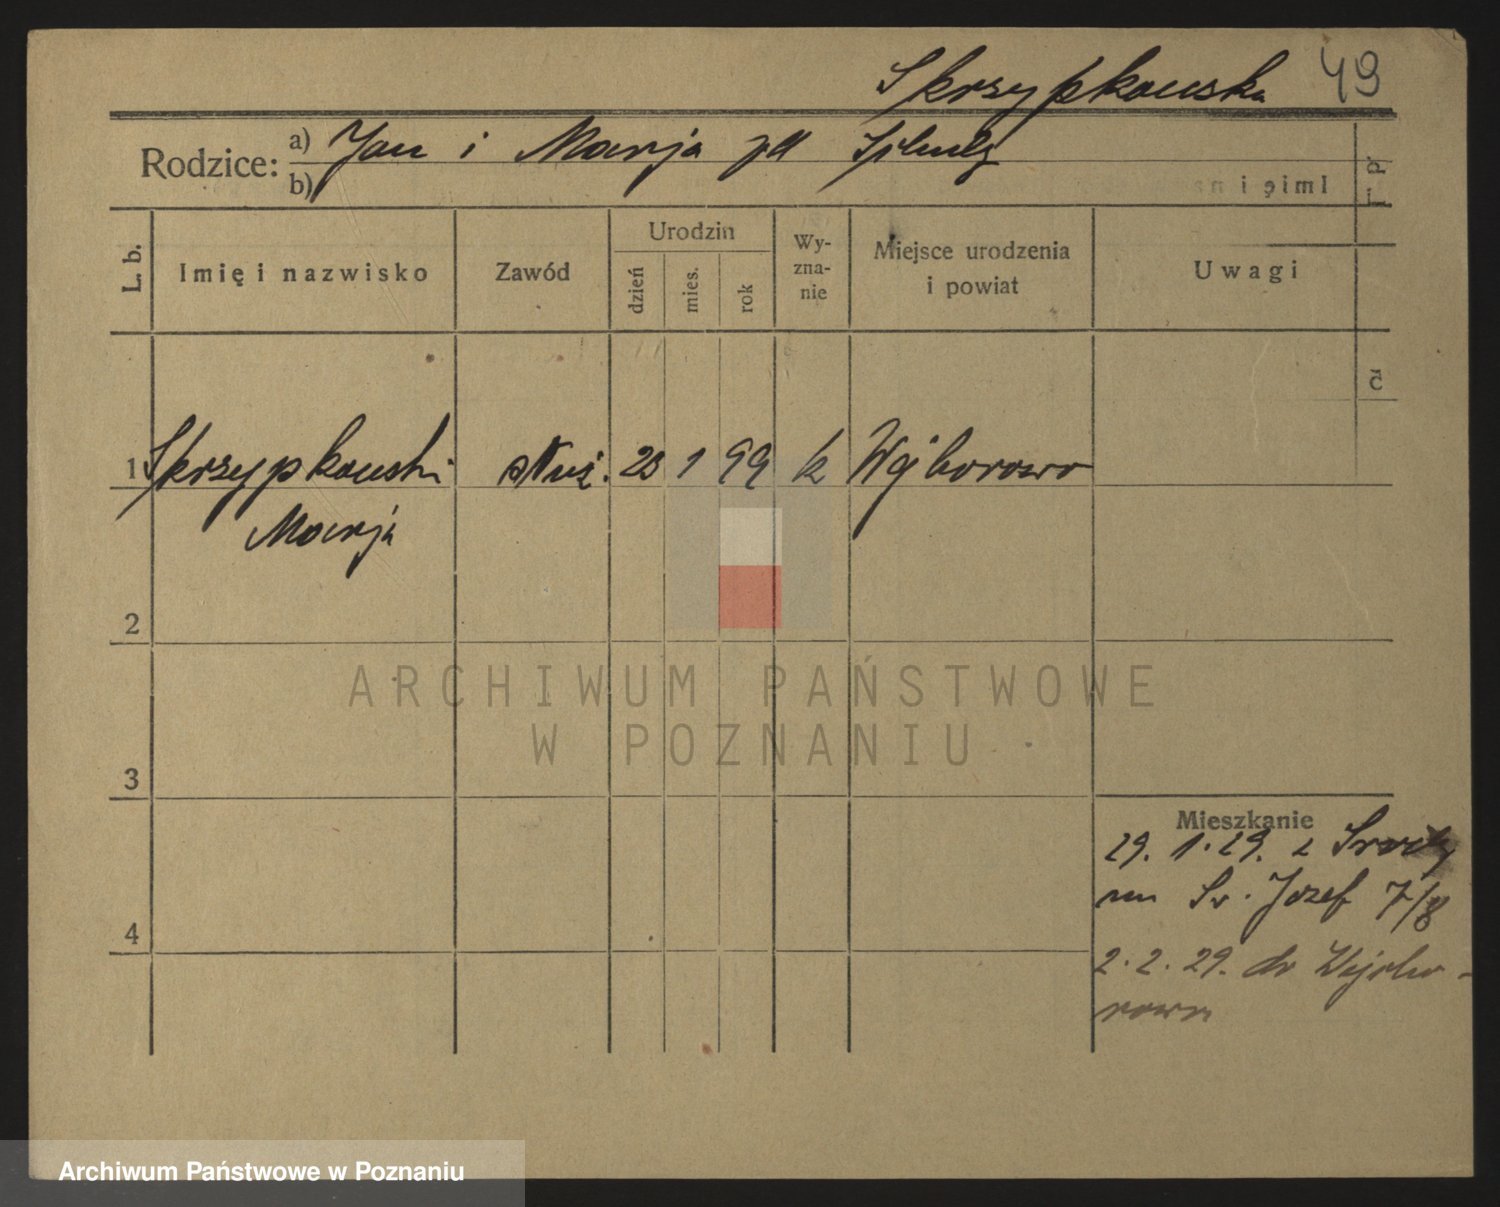 Skrzypkowska 49
Rodzice:
a) Jan i Marja
b)
Imię i
L. b.
Imię i nazwisko
Zawód
Urodzin
dzień
mies.
rok
Wy-
zna-
nie
Miejsce urodzenia
i powiat
Uwagi
1 Skrzypkowski służ. 23 1 99 k Wójborowo
Marja
2
3
4
Mieszkanie
29. 1. 29. z Środy
Św. Józef 7/8
2. 2. 29. do
rowa
ARCHIWUM PAŃSTWOWE
W POZNANIU
Archiwum Państwowe w Poznaniu